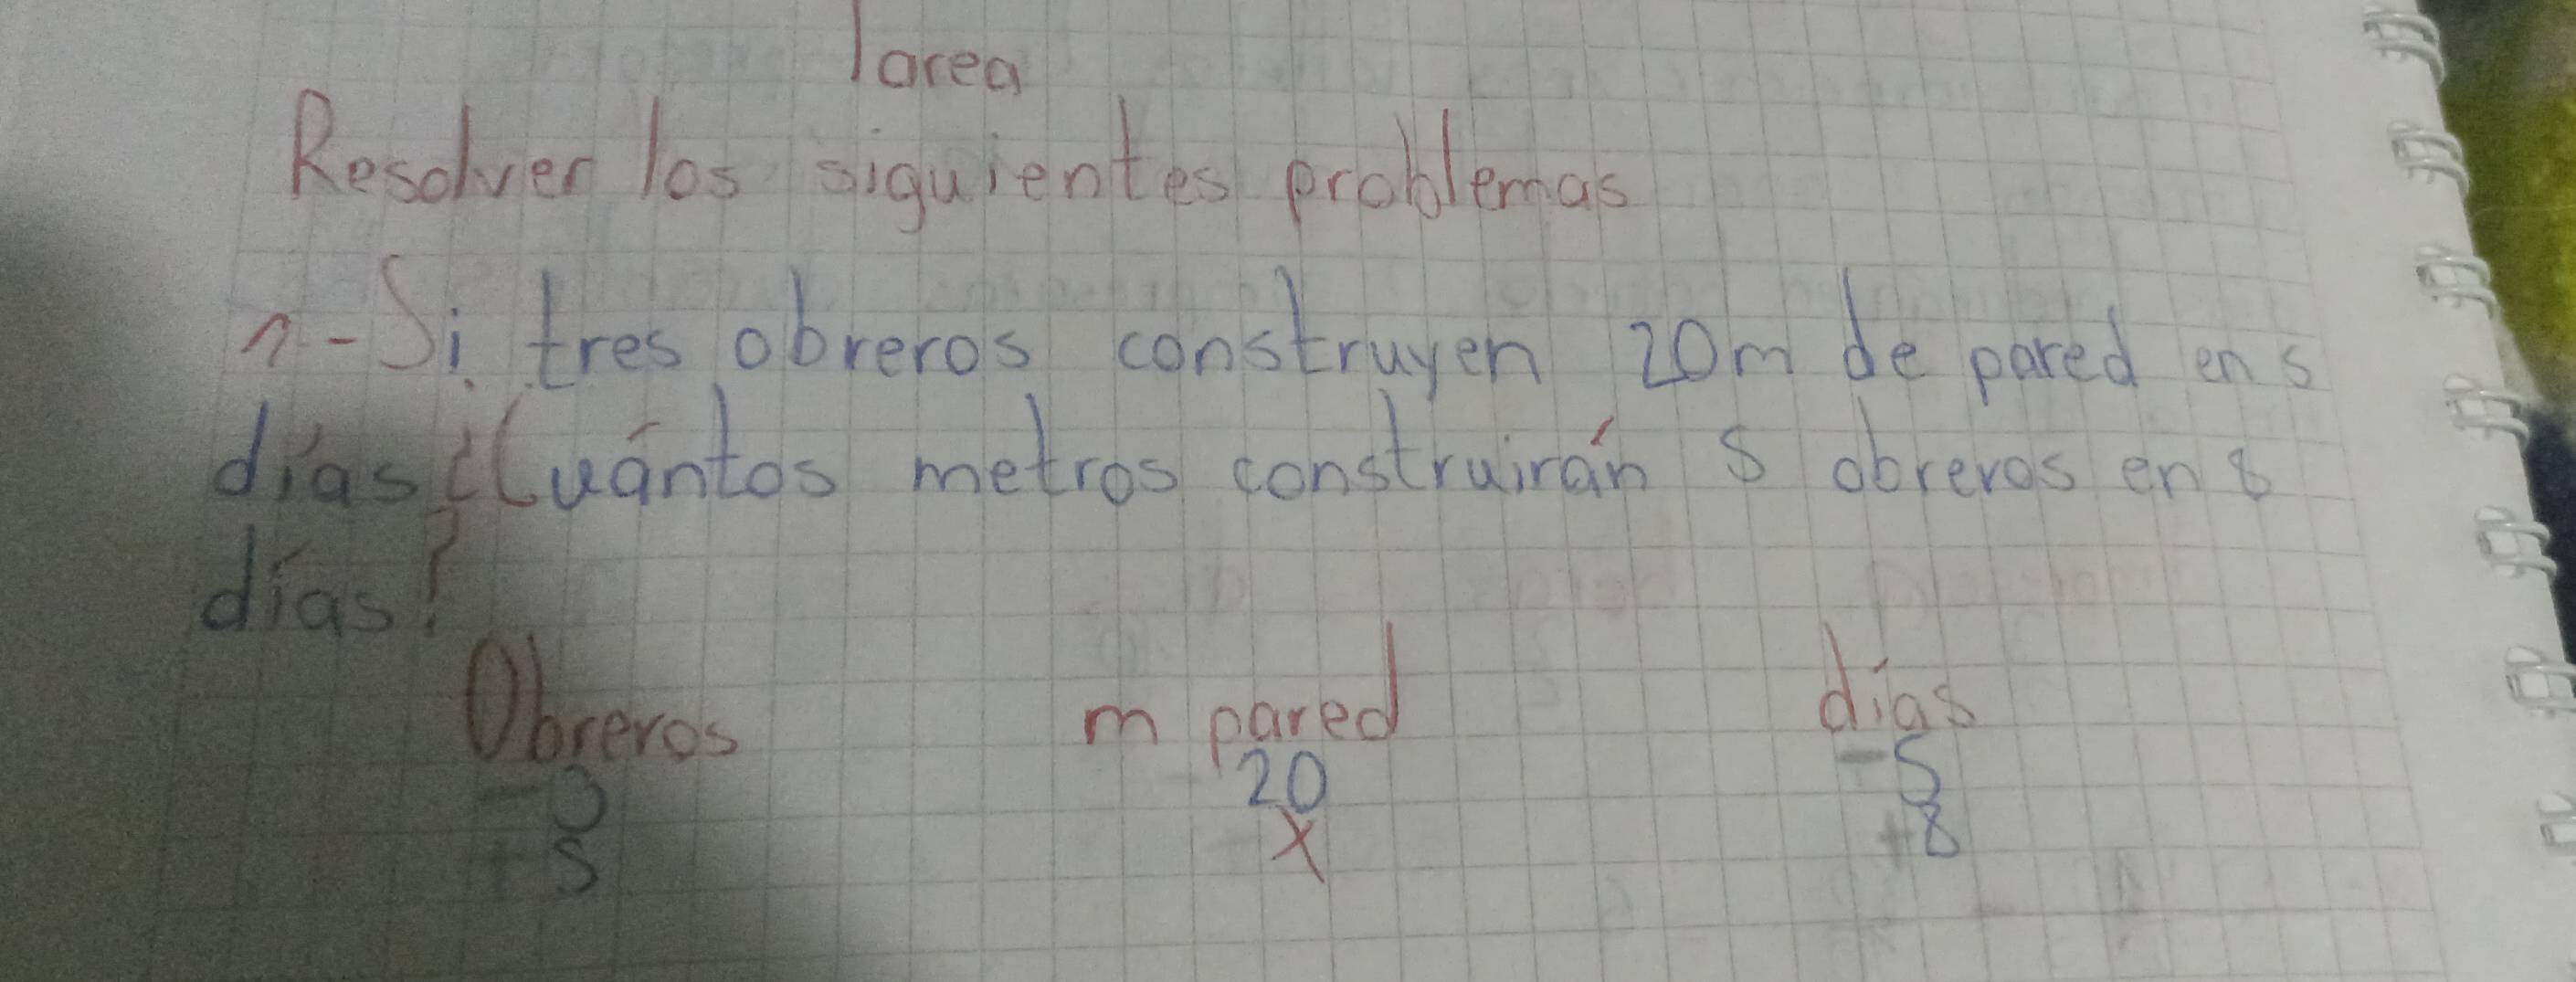 Tarea
Resolver los siguientes problemas
1-Si tres obreros construyen 20m de pared en 5
días ¿Cuántos metros construirán 5 obreros en 8
días?
Obreros m pared días
-3 20 -5
+5 x +8